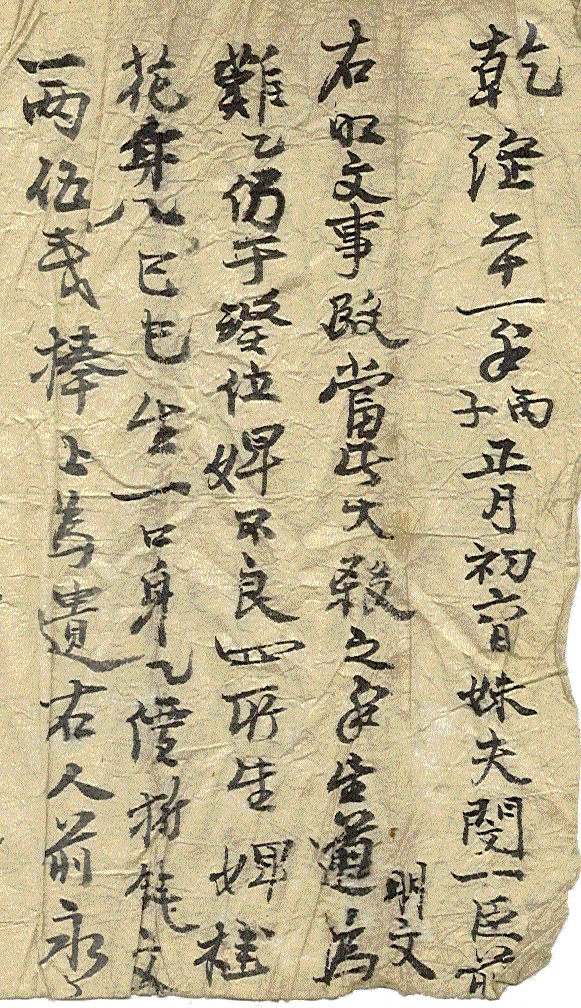 乾隆二十一年丙子正月初六日妹夫閔一臣前
明文
右明文事段當此大殺之年生道為
難乙仍于位婢不良四所生婢桂
花身乙己巳生一口身乙價折錢文
一兩伍戔捧上為遣右人前永